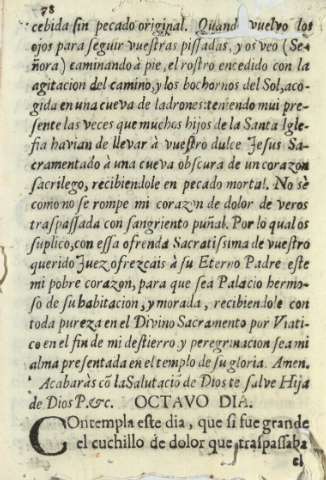 78
cebida sin pecado original. Quand vuelvo los
ojos para seguir vuestras pissadas, y os veo (Se-
ñora) caminando à pie, el rostro encedido con la
agitacion del camino, y los bochornos del Sol, aco-
gida en una cueva de ladrones: teniendo mui pre-
sente las veces que muchos hijos de la Santa Igle-
sia havian de llevar à vuestro dulce Jesus Sa-
cramentado à una cueva obscura de un corazon
sacrilego, recibiendole en pecado mortal. No sè
como no se rompe mi corazon de dolor de veros
traspassada con sangriento puñal. Por lo qual os
suplico, con essa ofrenda Sacratissima de vuestro
querido Juez ofrezcais à su Eterno Padre este
mi pobre corazon, para que sea Palacio hermo-
so de su habitacion, y morada, recibiendole con
toda pureza en el Divino Sacramento por Viati-
co en el fin de mi destierro, y peregrinacion sea mi
alma presentada en el templo de su gloria. Amen.
Acabaràs cõ la Salutaciõ de Dios te salve Hija
de Dios P.&c. OCTAVO DIA.
COntempla este dia, que si fue grande
el cuchillo de dolor que traspassaba
el